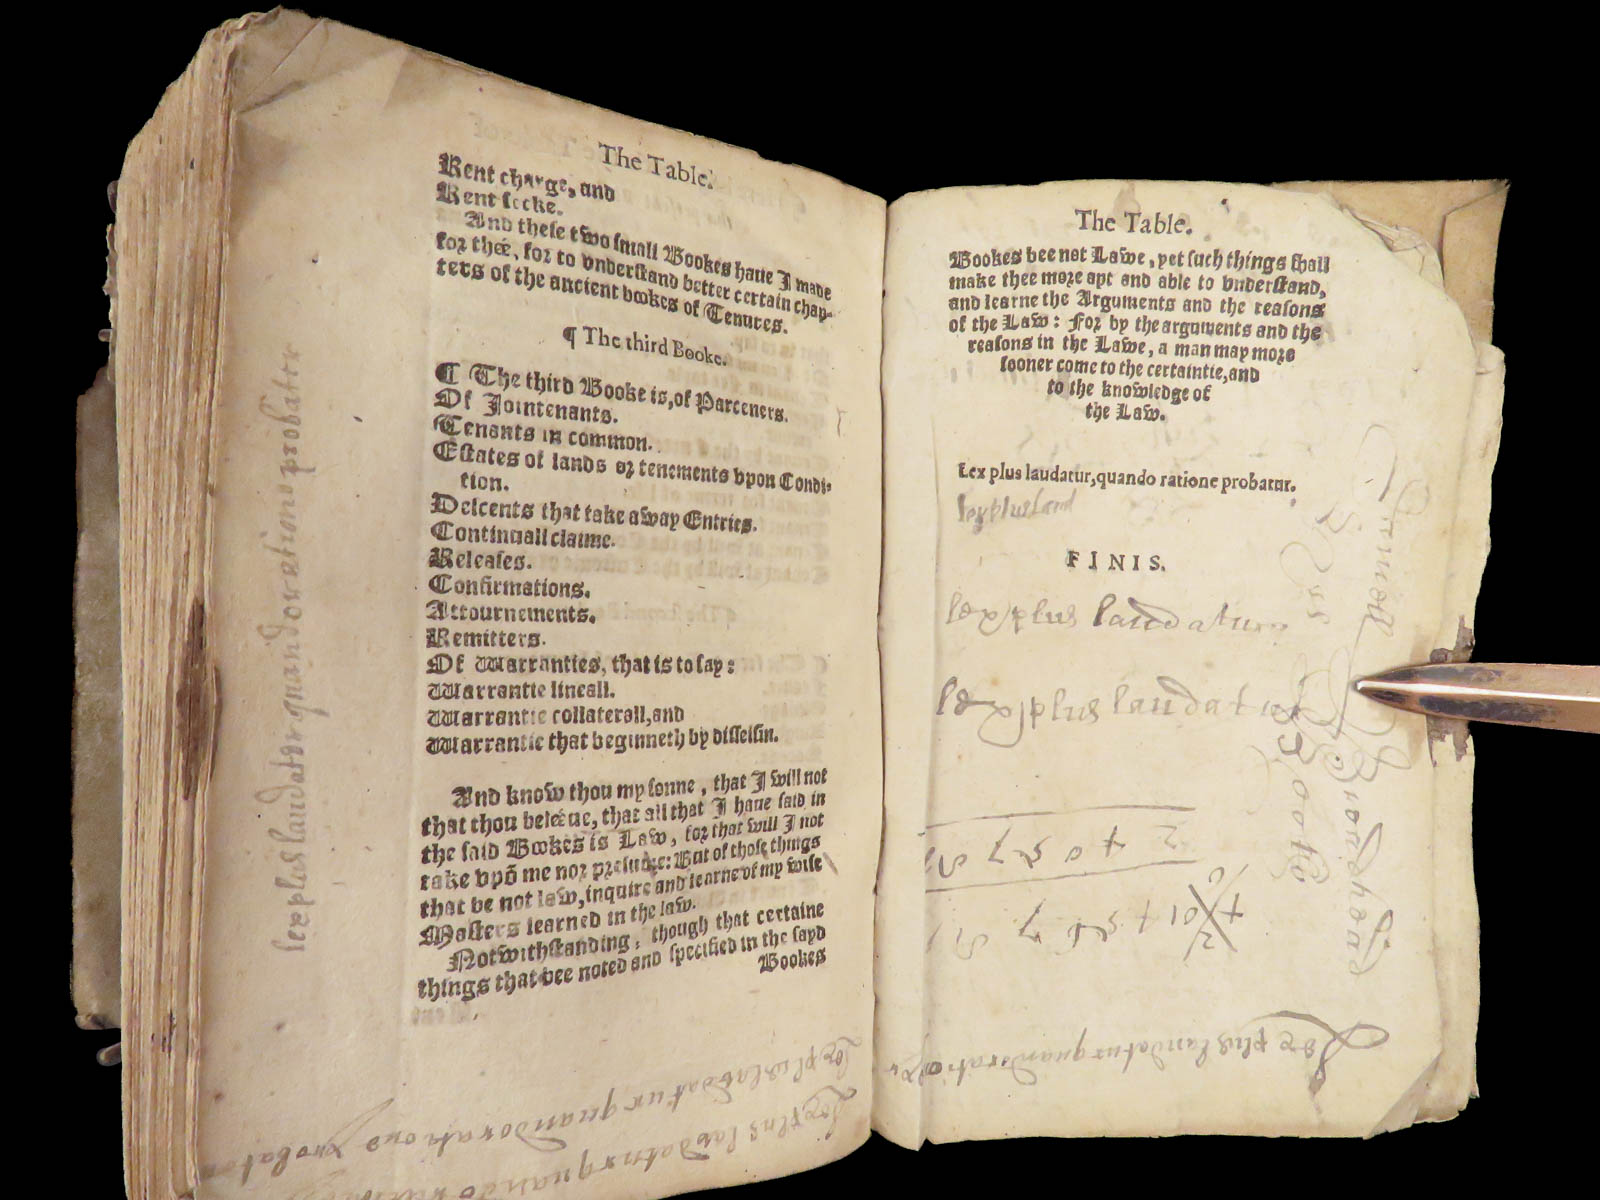 The Table.
Rent charge, and
Rent secke.
And these two small Bookes haue I made
for thée, for to vnderstand better certain chap-
ters of the ancient bookes of Tenures.
¶ The third Booke.
¶ The third Booke is, of Parceners.
Of Jointenants.
Tenants in common.
Estates of lands or tenements vpon Condi-
tion.
Descents that take away Entries.
Continuall claime.
Releases.
Confirmations.
Attournements.
Remitters.
Of Warranties, that is to say:
Warrantie lineall.
Warrantie collaterall, and
Warrantie that beginneth by disseisin.
And know thou my sonne, that I will not
that thou beléeue, that all that I haue said in
the said Bookes is Law, for that will I not
take vpõ me nor presume: But of those things
that be not law, inquire and learne of my wise
Masters learned in the law.
Notwithstanding, though that certaine
things that bee noted and specified in the sayd
Bookes
lex plus laudatur quando ratione probatr
Lex plus laudatur quando ratione probatur
Lex plus laudatur quando
The Table.
Bookes bee not Lawe, yet such things shall
make thee more apt and able to vnderstand,
and learne the Arguments and the reasons
of the Law: For by the arguments and the
reasons in the Lawe, a man may more
sooner come to the certaintie, and
to the knowledge of
the Law.
Lex plus laudatur, quando ratione probatur.
lex plus laud
FINIS.
lex plus laudatur
lex plus laudatur
Lex plus laudatur quando ratione